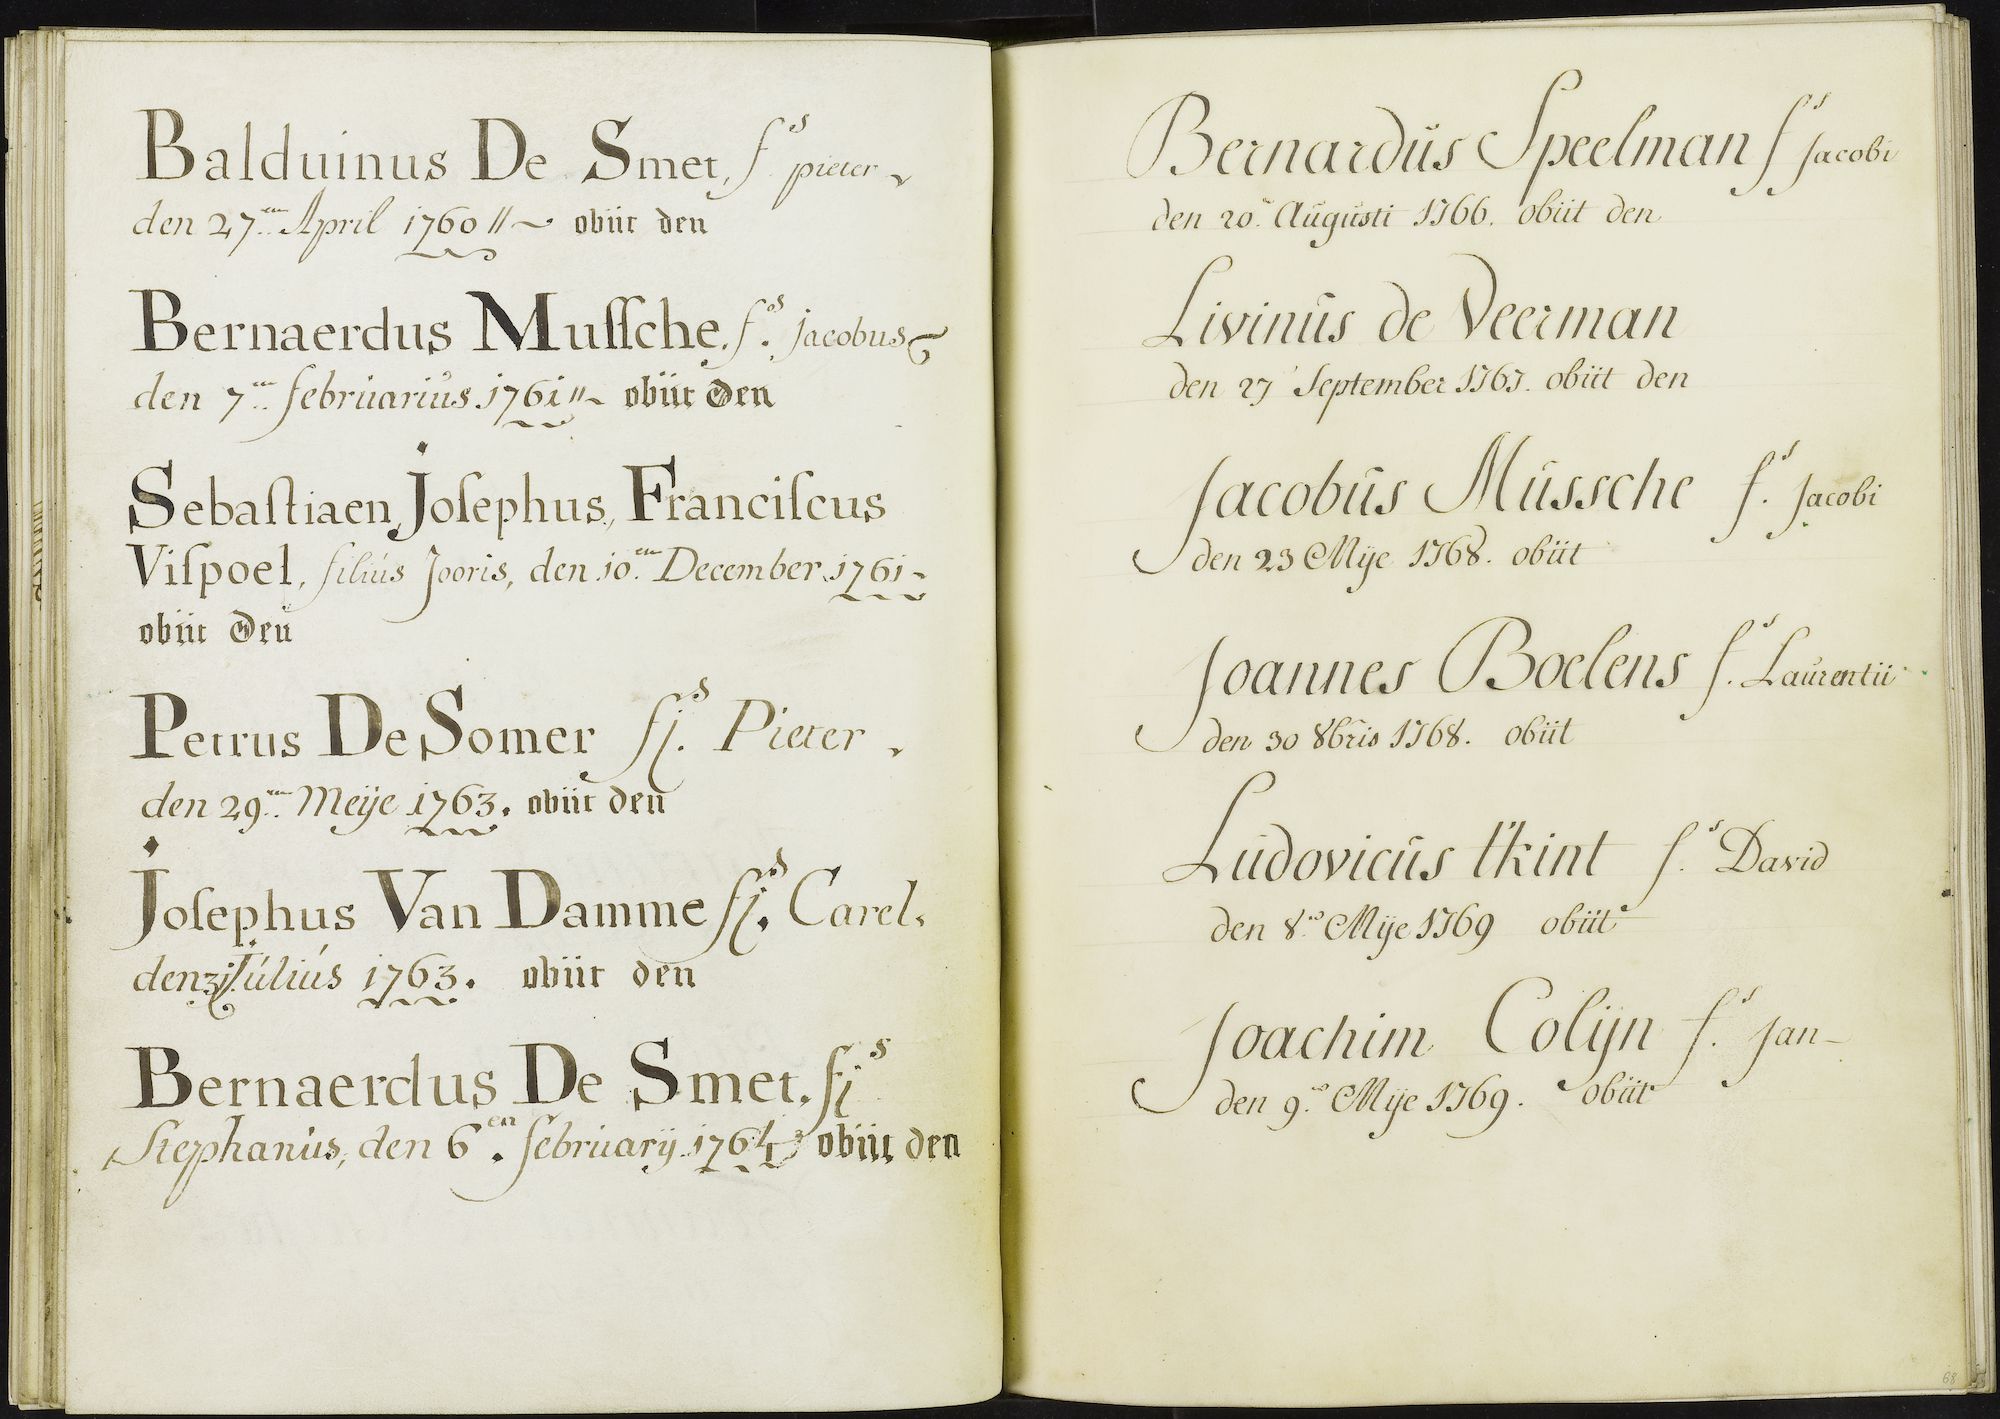 Balduinus De Smet, fs pieter
den 27en April 1760 obiit den
Bernaerdus Muſſche, fs. jacobus
den 7en februarius 1761 obiit den
Sebaſtiaen, Joſephus, Franciſcus
Viſpoel, filius Jooris, den 10en December 1761
obiit den
Petrus De Somer fis. Pieter
den 29en Meije 1763. obiit den
Joſephus Van Damme fis. Carel.
den 31 Julius 1763. obiit den
Bernaerdus De Smet. fis
Stephanus, den 6en february 1764 obiit den
Bernardus Speelman fs Jacobi
den 20e Augusti 1766. obiit den
Livinus de Veerman
den 27 September 1767. obiit den
Jacobus Mussche fs. Jacobi
den 23 Mije 1768. obiit
Joannes Boelens fs. Laurentii
den 30 8bris 1768. obiit
Ludovicus t'kint fs. David
den 8en Mije 1769 obiit
Joachim Colijn fs. Jan
den 9en Mije 1769. obiit
68